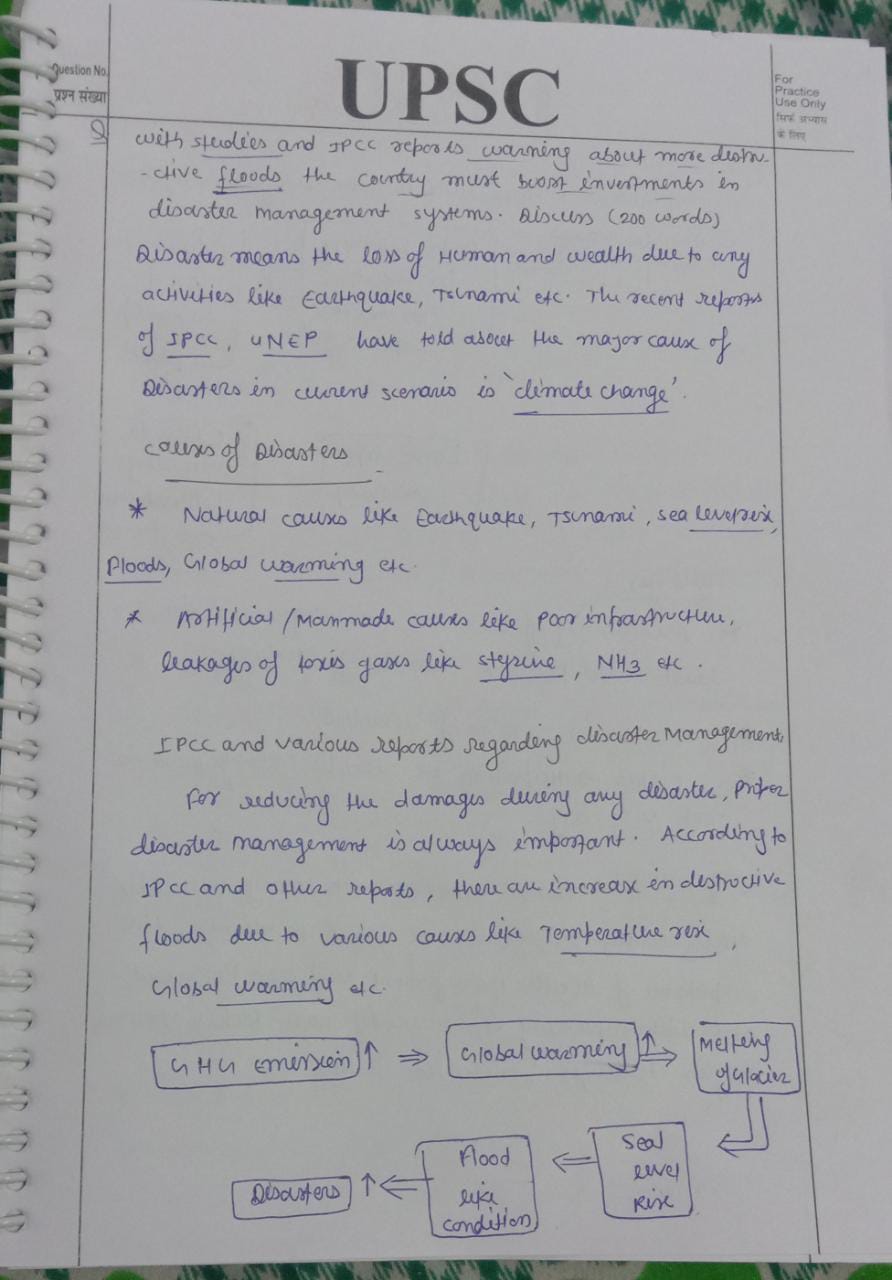 Question No.
प्रश्न संख्या
UPSC
For
Practice
Use Only
सिर्फ अभ्यास
के लिए
Q with studies and IPCC reports warning about more destru-
-ctive floods the country must boost investments in
disaster management systems. Discuss (200 words)
Disaster means the loss of Human and wealth due to any
activities like Earthquake, Tsunami etc. The recent reports
of IPCC, UNEP have told about the major cause of
Disasters in current scenario is 'climate change'.
causes of Disasters -
* Natural causes like Earthquake, Tsunami, sea level rise,
Floods, Global warming etc.
* Artificial/Manmade causes like poor infrastructure,
leakages of toxis gases like styrine, NH3 etc.
IPCC and various reports regarding disaster Management,
For reducing the damages during any disaster, proper
disaster management is always important. According to
IPCC and other reports, there are increase in destructive
floods due to various causes like Temperature rise,
Global warming etc.
GHG Emission ↑ ⇒ Global warming ↑ ⇒ Melting
of Glacier
Disasters ↑ ⇐ Flood
like
condition ⇐ Seal
level
Rise